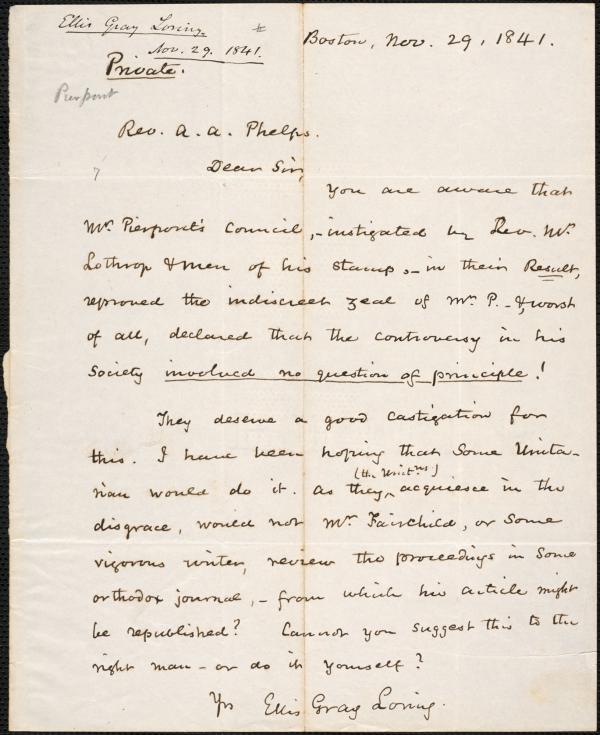 Ellis Gray Loring,
Nov. 29. 1841.
Boston, Nov. 29, 1841.
Private.
Pierpont
Rev. A. A. Phelps.
Dear Sir,
You are aware that
Mr. Pierpont's Council, - instigated by Rev. Mr.
Lothrop & men of his stamp, - in their Result,
reproved the indiscreet zeal of Mr. P. - &, worst
of all, declared that the controversy in his
Society involved no question of principle!
They deserve a good castigation for
this. I have been hoping that some Unita-
rian would do it. As they (the Unitns) acquiesce in the
disgrace, would not Mr. Fairchild, or some
vigorous writer, review the proceedings in some
orthodox journal, - from which his article might
be republished? Cannot you suggest this to the
right man - or do it yourself?
Yrs Ellis Gray Loring.